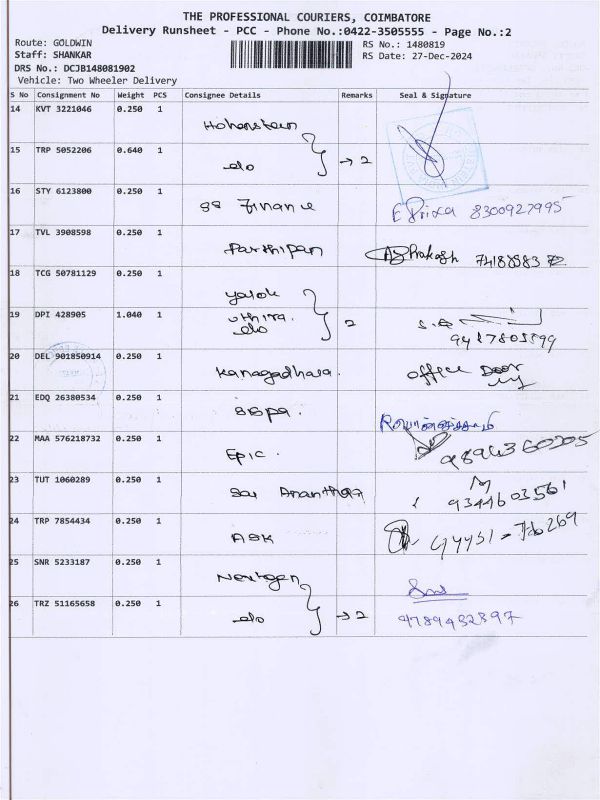 THE PROFESSIONAL COURIERS, COIMBATORE
Delivery Runsheet - PCC - Phone No.:0422-3505555 - Page No.:2
Route: GOLDWIN
Staff: SHANKAR
DRS No.: DCJB148081902
Vehicle: Two Wheeler Delivery
RS No.: 1480819
RS Date: 27-Dec-2024
S No Consignment No Weight PCS Consignee Details Remarks Seal & Signature
14 KVT 3221046 0.250 1 Hohenstein
15 TRP 5052206 0.640 1 do → 2
16 STY 6123800 0.250 1 SS Finance E Priya 8300927995
17 TVL 3908598 0.250 1 Parthipan
18 TCG 50781129 0.250 1
19 DPI 428905 1.040 1 do 2
20 DEL 901850914 0.250 1 Kanagadhara. office Door
21 EDQ 26380534 0.250 1
22 MAA 576218732 0.250 1 Epic.
23 TUT 1060289 0.250 1 Sai 9344603561
24 TRP 7854434 0.250 1 ASK
25 SNR 5233187 0.250 1 Nextgen
26 TRZ 51165658 0.250 1 do → 2 9789432397